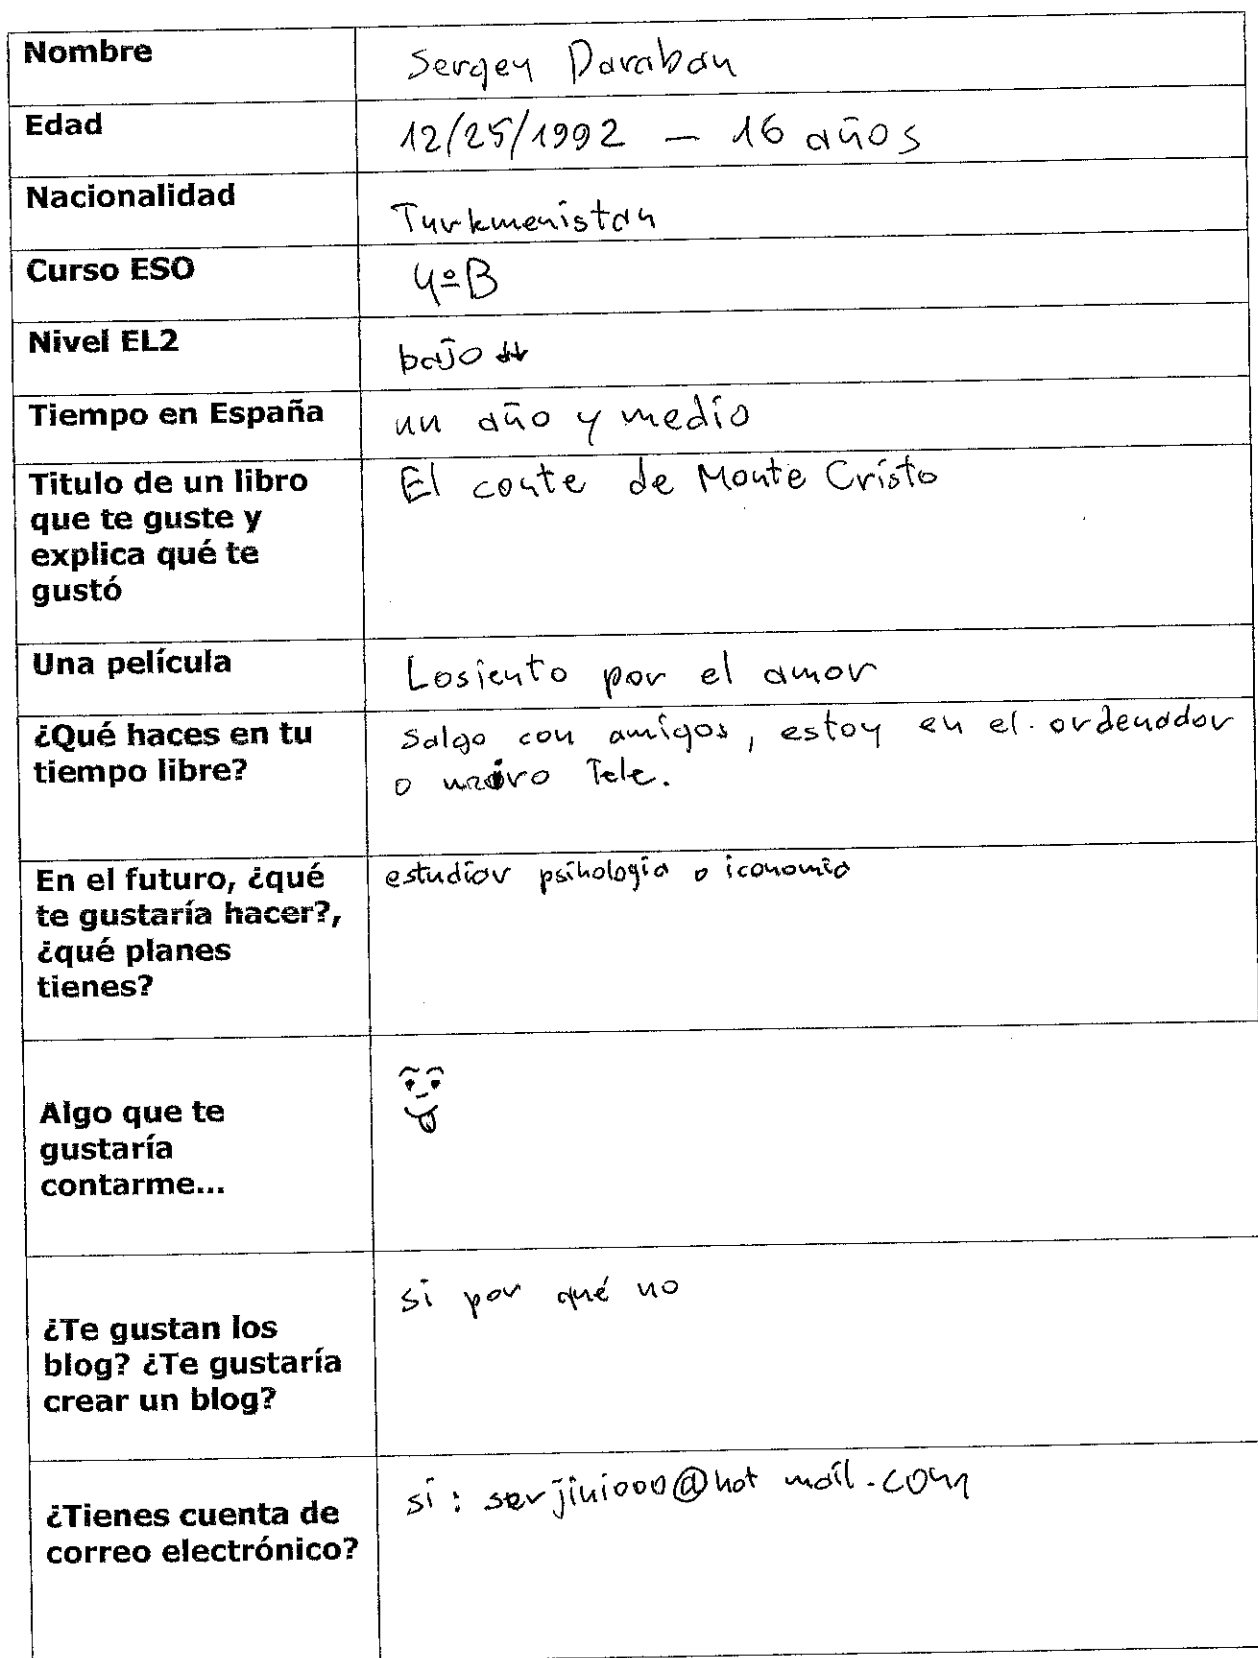 Nombre
Sergey Daraban
Edad
12/25/1992 – 16 años
Nacionalidad
Turkmenistan
Curso ESO
4º B
Nivel EL2
bajo ↓↓
Tiempo en España
un año y medio
Titulo de un libro
que te guste y
explica qué te
gustó
El conte de Monte Cristo
Una película
Losiento por el amor
¿Qué haces en tu
tiempo libre?
Salgo con amigos, estoy en el ordenador
o miro Tele.
En el futuro, ¿qué
te gustaría hacer?,
¿qué planes
tienes?
estudiar psihologia o iconomia
Algo que te
gustaría
contarme...
¿Te gustan los
blog? ¿Te gustaría
crear un blog?
si por qué no
¿Tienes cuenta de
correo electrónico?
si: serjini000@hot mail.com